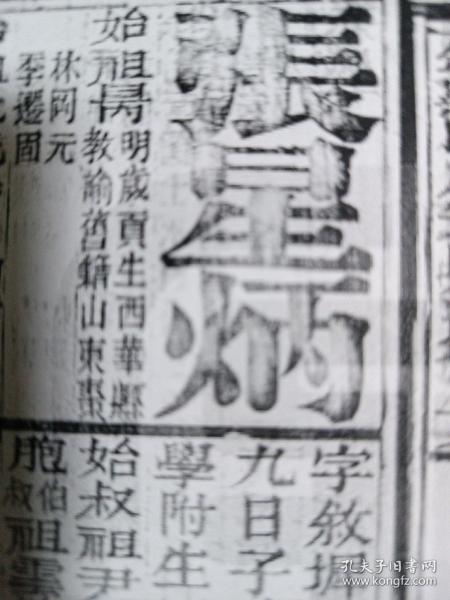 張星炳
始祖昺明歲貢生西華縣
教諭舊籍山東棗
林岡元
李遷固
字敘
九日子
學附生
始叔祖尹
胞伯叔祖雲
孔夫子旧书网
www.kongfz.com